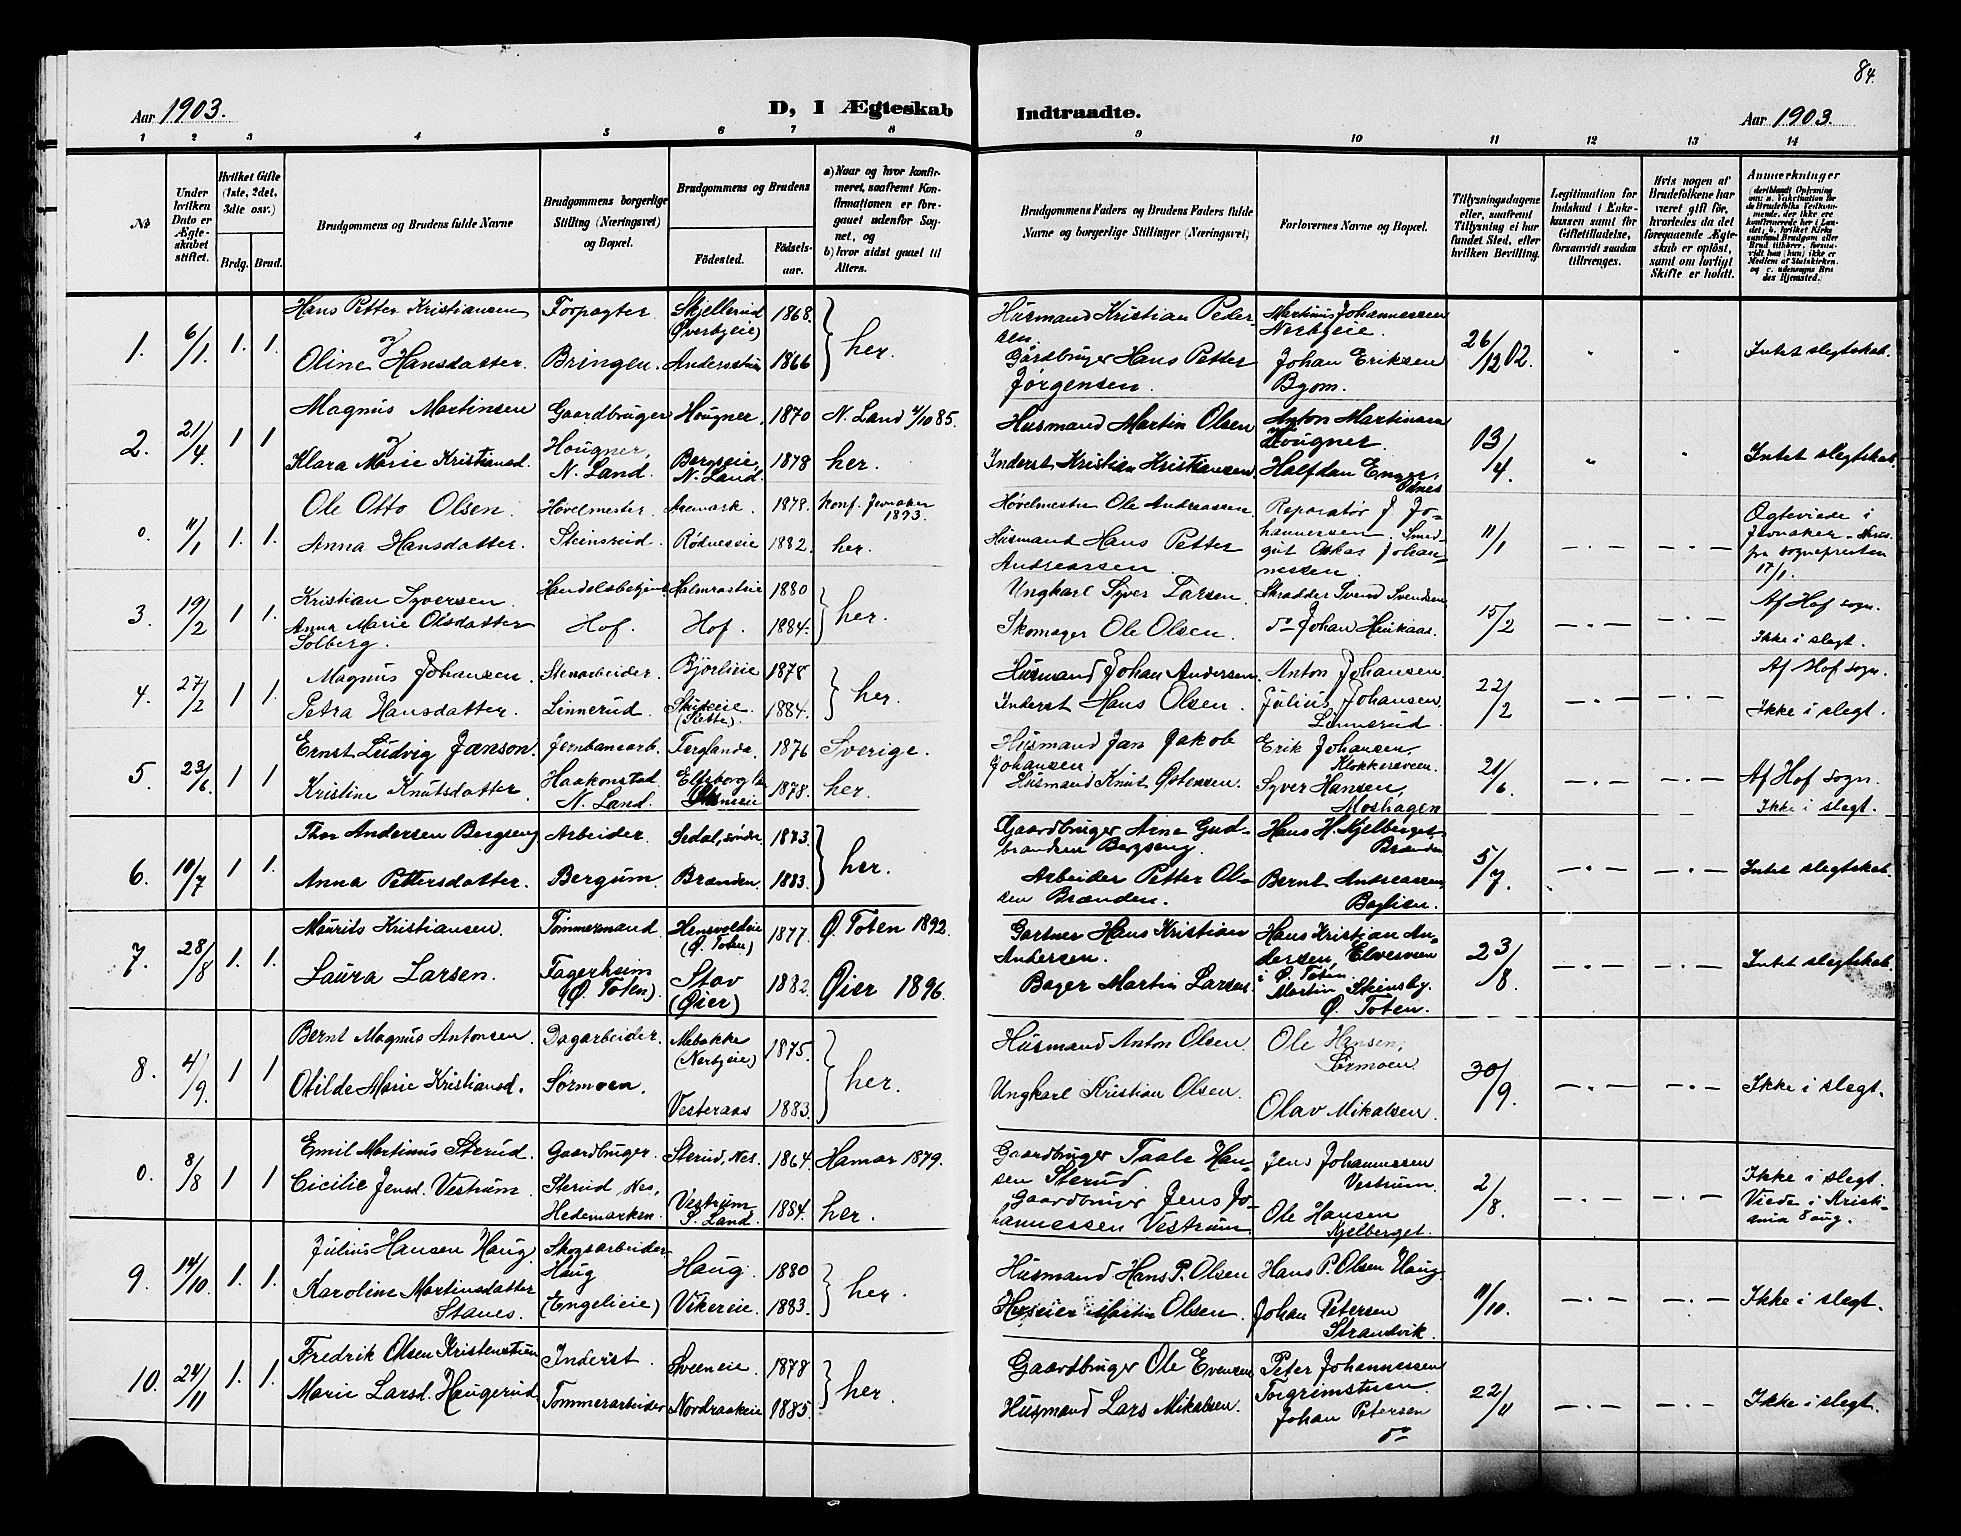 84.
Aar 1903. D, I Ægteskab Indtraadte. Aar 1903.
1 2 3 4 5 6 7 8 9 10 11 12 13 14
№
Under hvilken Dato er Ægteskabet stiftet.
Hvilket Gifte (1ste, 2det, 3die osv.)
Brdg. Brud.
Brudgommens og Brudens fulde Navne
Brudgommens borgerlige Stilling (Næringsvei) og Bopæl.
Brudgommens og Brudens
Födested. Födselsaar.
a) Naar og hvor konfirmeret, saafremt Konfirmationen er foregaaet udenfor Sognet, og
b) hvor sidst gaaet til Alters.
Brudgommens Faders og Brudens Faders fulde Navne og borgerlige Stillinger (Næringsvei)
Forlovernes Navne og Bopæl.
Tillysningsdagene eller, saafremt Tillysning ei har fundet Sted, efter hvilken Bevilling.
Legitimation for Indskud i Enkekassen samt for Giftetilladelse, forsaavidt saadan tiltrænges.
Hvis nogen af Brudefolkene har været gift för, hvorledes da det foregaaende Ægteskab er oplöst, samt om lovligt Skifte er holdt.
Anmærkninger
1. 6/1. 1. 1. Hans Petter Kristiansen Forpagter Skjellerud (Överbyeie) 1868. her. Husmand Kristian Pedersen. Martinus Johannessen Nerbyeie. 26/12 02. Intet slegtskab.
og
Oline Hansdatter. Bringen. Andersstuen 1866 Gårdbruger Hans Petter Jörgensen. Johan Eriksen Byom.
2. 21/4. 1 1 Magnus Martinsen Gaardbruger Hougner. 1870 N. Land 4/10 85. Husmand Martin Olsen Anton Martinsen Hougner. 13/4. Intet slegtskab.
og
Klara Marie Kristiansd. Hougner, N. Land. Bergseie, N. Land. 1878 her. Inderst Kristian Kristiansen. Halfdan Enger, Odnes
0. 11/1 1. 1. Ole Otto Olsen. Hövelmester. Aremark. 1878. Konf. Jevnaker 1893. Hövelmester Ole Andreassen. Reparatör J. Johannessen, Smedgut Oskar Johannessen. 11/1 Ogteviede i Jevnaker fra sognepresten 17/1.
Anna Hansdatter. Steinsrud. Rödneseie 1882. her. Husmand Hans Petter Andreassen.
3. 19/2 1 1 Kristian Syversen. Handelsbetjent Holmrasteie 1880 her. Ungkarl Syver Larsen. Skrædder Svend Svendsen 15/2 Af Hof sogn.
Anna Marie Olsdatter Solberg. Hof. Hof. 1884. Skomager Ole Olsen. do Johan Heikaas. Ikke i slegt.
4. 27/2 1 1. Magnus Johansen. Stenarbeider. Björlieie 1878 her. Husmand Johan Andersen. Anton Johansen. 22/2 Af Hof sogn.
Petra Hansdatter. Linnerud. (Slette). 1884. Inderst Hans Olsen. Julius Johansen, Linnerud. Ikke i slegt.
5. 23/6. 1 1 Ernst Ludvig Janson. Jernbanearb. Ferglanda. 1876 Sverige. Husmand Jan Jakob Johansen Erik Johansen, Klokkersveen. 21/6. Af Hof sogn.
Kristine Knutsdatter. Haakonstad N. Land. Elfsborg Län 1878. her. Husmand Knut Östensen. Syver Hansen, Moshagen Ikke i slegt.
6. 10/7 1 1. Thor Andersen Bergseng. Arbeider. Sedal, söndre 1873. her. Gaardbruger Arne Gudbrandsen Bergseng. Hans H. Kjelberget, Brænden 5/7. Intet slegtskab.
Anna Pettersdatter. Bergum. Brænden. 1883. Arbeider Petter Olsen Brænden. Bernt Andreassen, Baglien.
7. 28/8 1. 1. Mauritz Kristiansen. Tömmermand. Hensvoldeie (Ö. Toten) 1877. Ø. Toten 1892. Gartner Hans Kristian Andersen. Hans Kristian Andersen, Elvesveen i Ö. Toten 23/8. Intet slegtskab.
Laura Larsen. Fagerheim (Ø. Toten). Stav (Øier) 1882. Øier 1896. Bager Martin Larsen. Martin Steinsby. Ø. Toten.
8. 4/9. 1 1 Bernt Magnus Antonsen. Dagarbeider. Mebakke (Nerbyeie) 1875. her. Husmand Anton Olsen. Ole Hansen, Sörmoen 30/9. Ikke i slegt.
Otilde Marie Kristiansd. Sörmoen. Vesteraas 1883. Ungkarl Kristian Olsen. Olav Mikalsen.
0. 8/8 1 1 Emil Martinus Sterud. Gaardbruger. Sterud, Nes. 1864. Hamar 1879. Gaardbruger Taale Hansen Sterud. Jens Johannessen Vestrum. 2/8. Ikke i slegt. Viede i Kristiania 8 aug.
Cicilie Jensd. Vestrum. Sterud, Nes, Hedemarken. Vestrum S. Land. 1884. her. Gaardbruger Jens Johannessen Vestrum. Ole Hansen Kjelberget.
9. 14/10. 1. 1. Julius Hansen Haug. Skogsarbeider Haug. 1880 her. Husmand Hans P. Olsen Hans P. Olsen Haug. 11/10. Ikke i slegt.
Karoline Martinsdatter Stanes. Haug (Engelieie) Vikereie 1883. Huseier Martin Olsen. Johan Petersen Strandvik.
10. 24/11 1. 1. Fredrik Olsen Kristenstuen Inderst. Sveeneie. 1878 her. Gaardbruger Ole Evensen Peter Johannessen Torgrimstuen. 22/11 Ikke i slegt.
Marie Larsd. Haugerud. Tömmerarbeider Nordraakeie 1885. Husmand Lars Mikalsen. Johan Petersen do